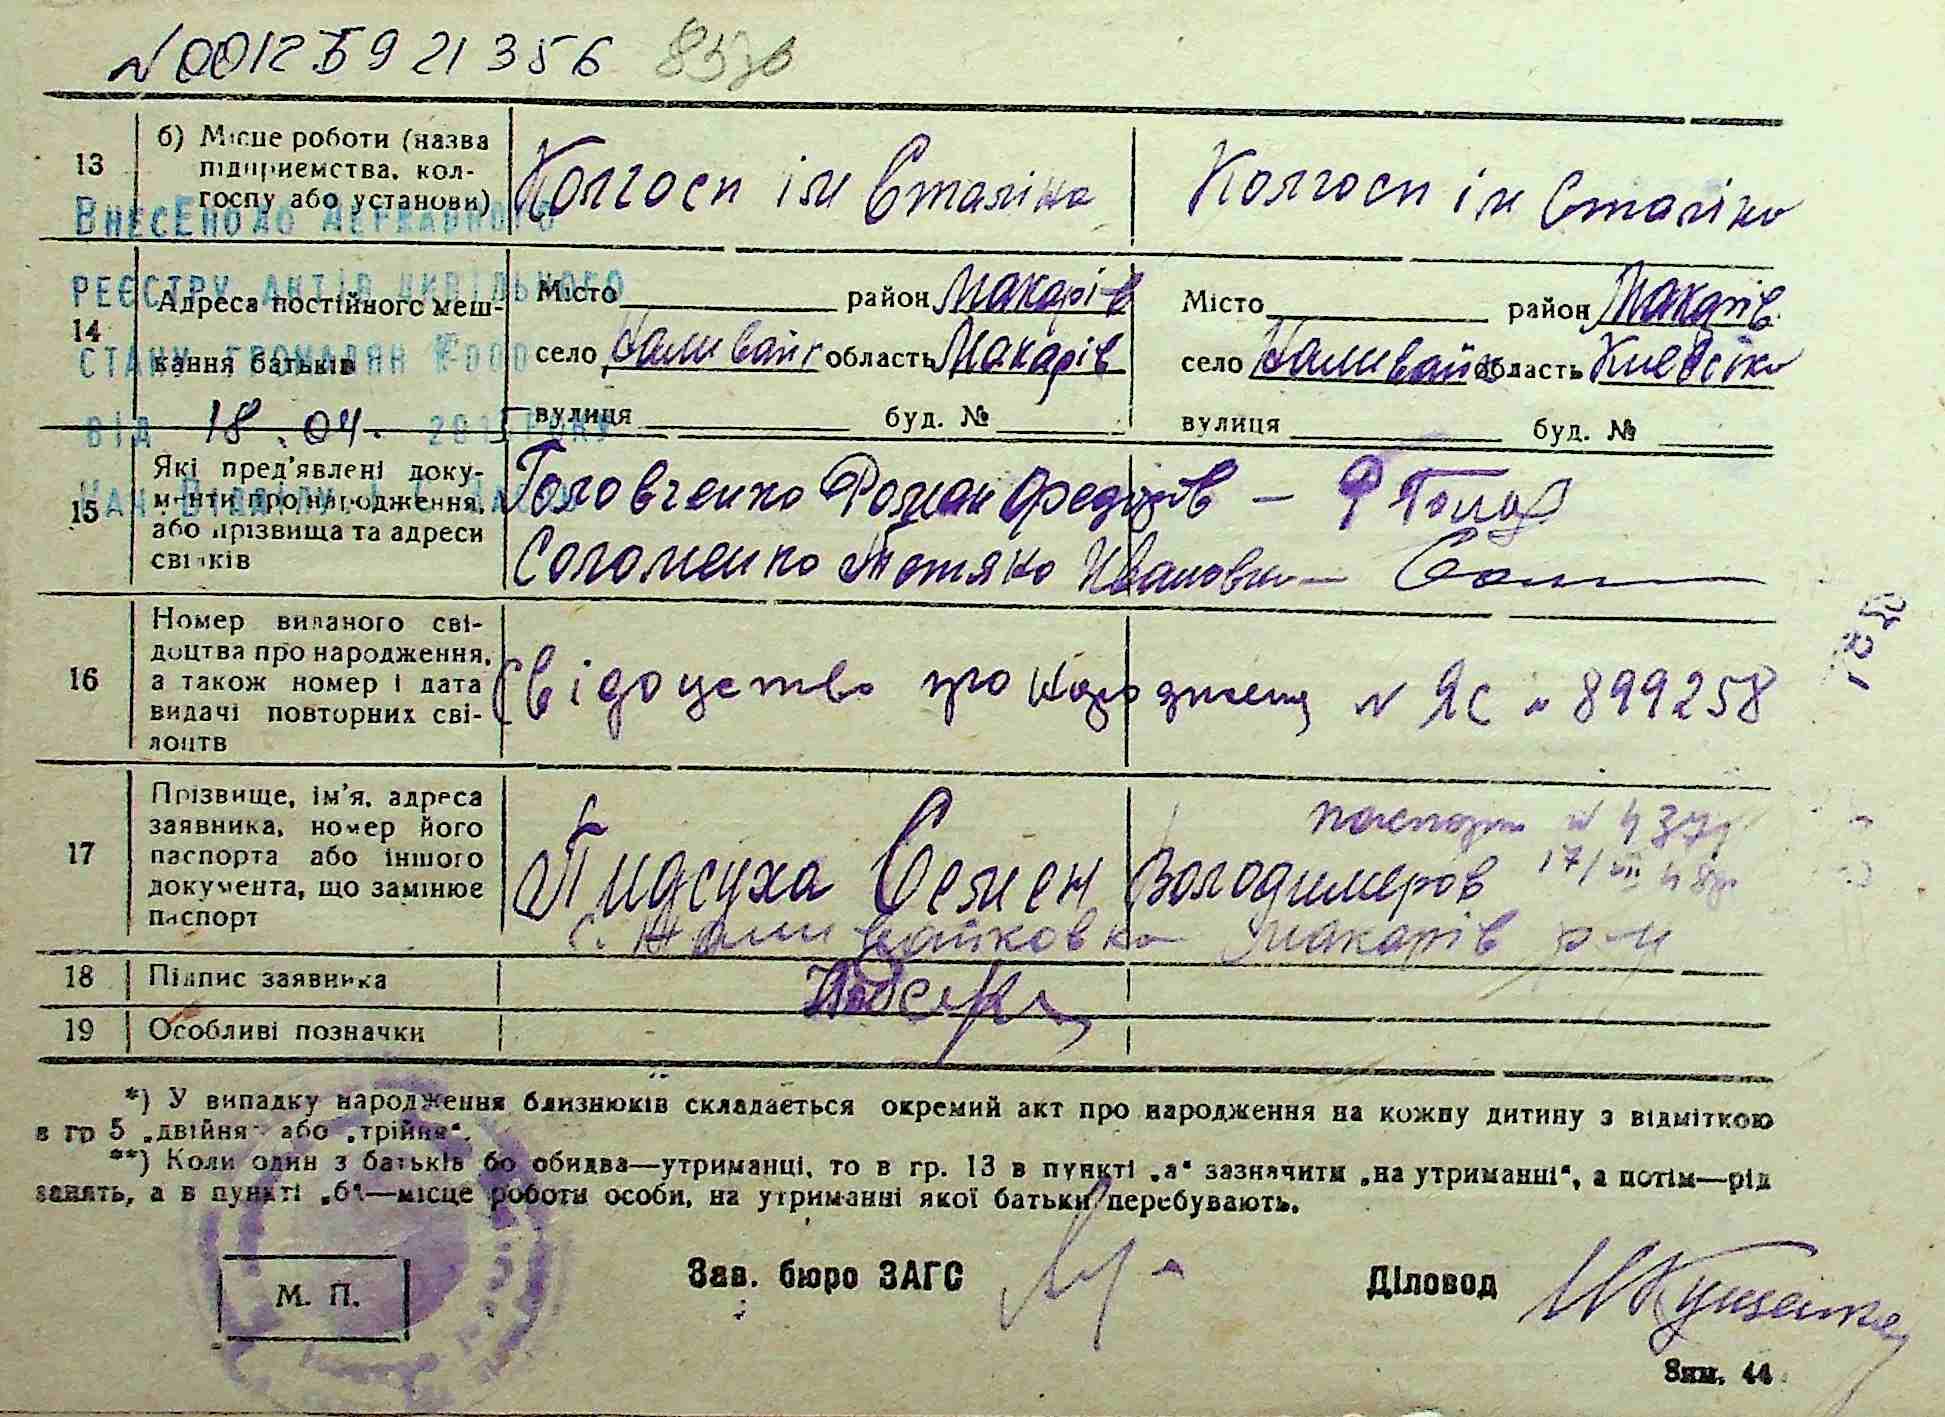 N00125921356
13
б) Місце роботи (назва
підприємства, кол-
госпу або установи)
Колгосп ім Сталіна
Колгосп ім Сталіна
ВНЕСЕНО ДО ДЕРЖАВНОГО
РЕЄСТРУ АКТІВ ЦИВІЛЬНОГО
СТАНУ ГРОМАДЯН
ВІД 18.04. РОКУ
14
Адреса постійного меш-
кання батьків
Місто район Макарів
село область Макарів
вулиця буд. №
Місто район Макарів
село область Киевсіка
вулиця буд. №
15
Які пред'явлені доку-
менти про народження,
або прізвища та адреси
свідків
Головченко Роман Федорів —
Соломенко Тетяна Ивановна —
16
Номер виданого сві-
доцтва про народження,
а також номер і дата
видачі повторних сві-
доцтв
Свідоцтво про народження N ЯС № 899258
17
Прізвище, ім'я, адреса
заявника, номер його
паспорта або іншого
документа, що замінює
паспорт
паспорт N
17/VII 48р
Пидсуха Семен Володимеров
с. Наливайковка Макарів р-н
18
Підпис заявника
19
Особливі позначки
*) У випадку народження близнюків складається окремий акт про народження на кожну дитину з відміткою
в гр 5 „двійня" або „трійня".
**) Коли один з батьків бо обидва—утриманці, то в гр. 13 в пункті „а" зазначити „на утриманні", а потім—рід
занять, а в пункті „б"—місце роботи особи, на утриманні якої батьки перебувають.
М. П.
Зав. бюро ЗАГС
Діловод
Зим. 44